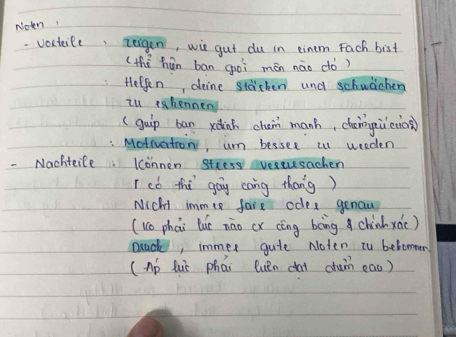 Noten :
- Vorteile : zeigen, wie gut du in einem Fach bist
(thể hiện bạn giỏi môn nào đó)
: Helfen, deine stärken und schwächen
zu erkennen
(giúp bạn xđịnh điểm mạnh, điểm yếu của)
: Motivation, um besser zu werden
- Nachteile : Können Stress verursachen
(có thể gây căng thẳng)
Nicht immer fair oder genau
(ko phải lúc nào cx công bằng & chính xác)
Druck, immer gute Noten zu bekommen
(Áp lực phải luôn đạt điểm cao)